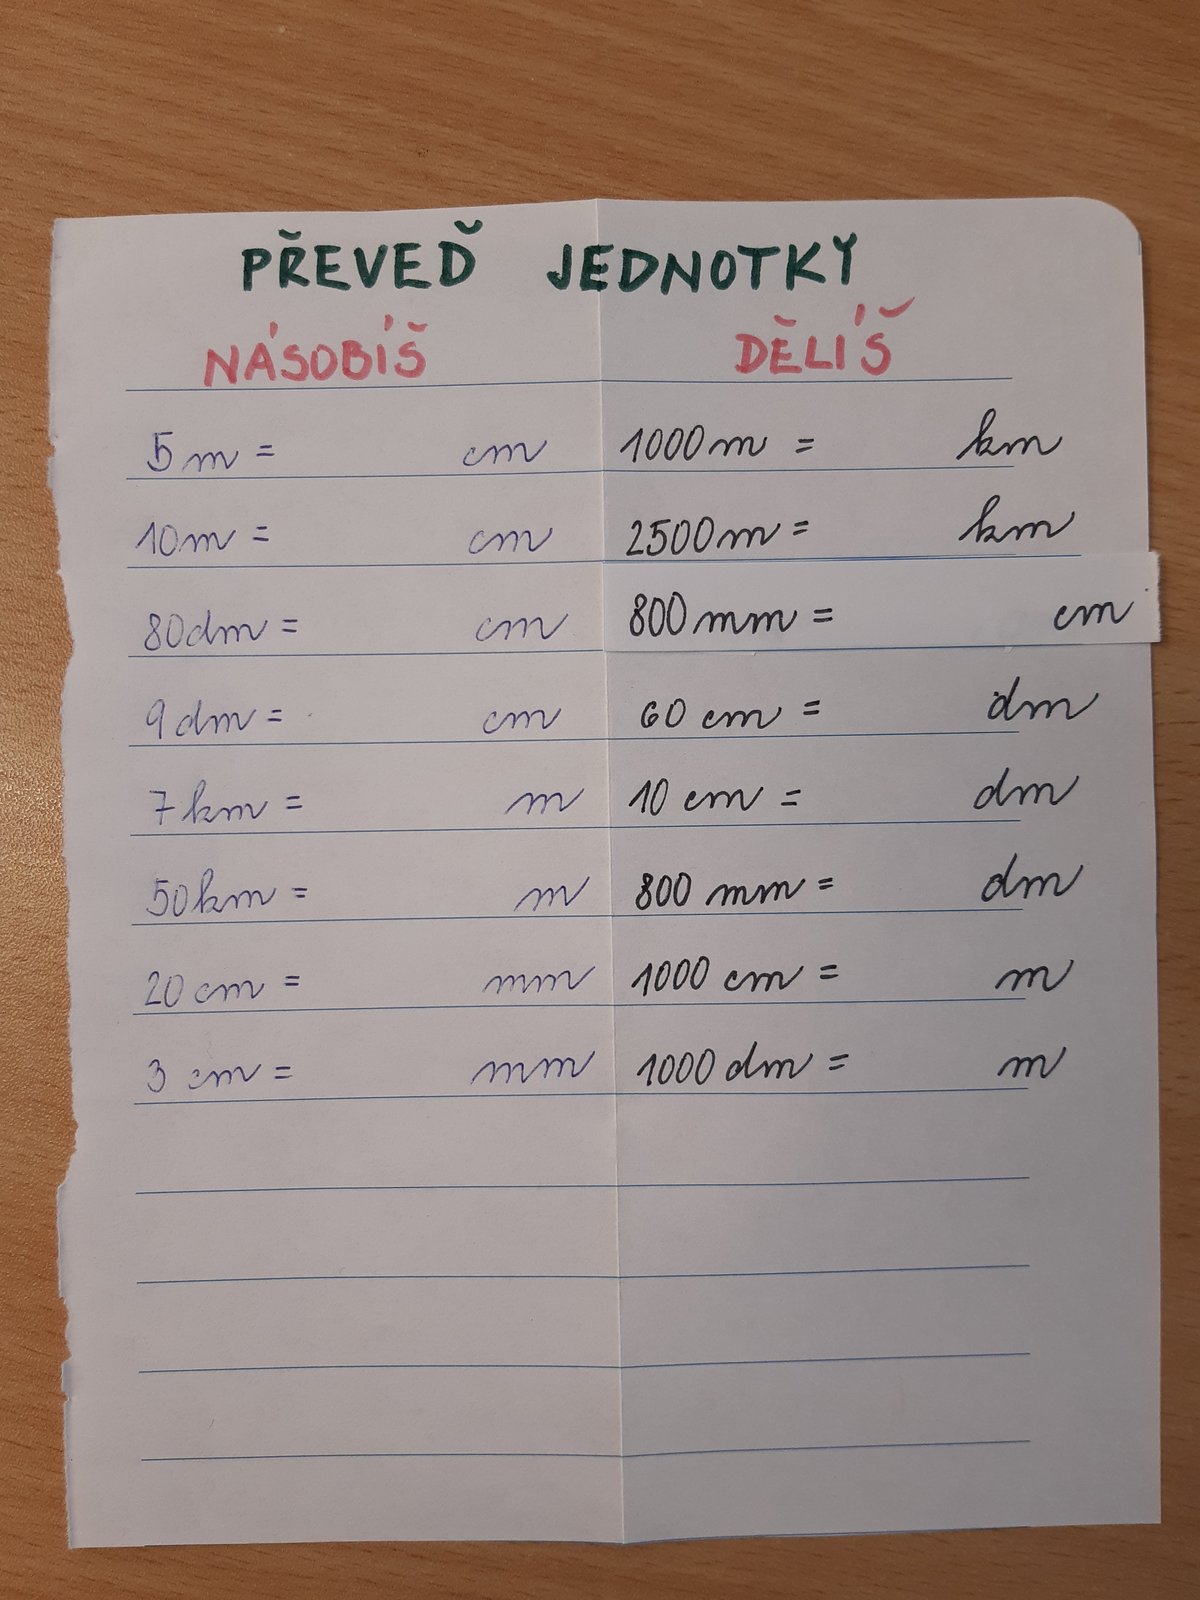 PŘEVEĎ JEDNOTKY
NÁSOBÍŠ DĚLÍŠ
5 m = cm 1000 m = km
10 m = cm 2500 m = km
80 dm = cm 800 mm = cm
9 dm = cm 60 cm = dm
7 km = m 10 cm = dm
50 km = m 800 mm = dm
20 cm = mm 1000 cm = m
3 cm = mm 1000 dm = m